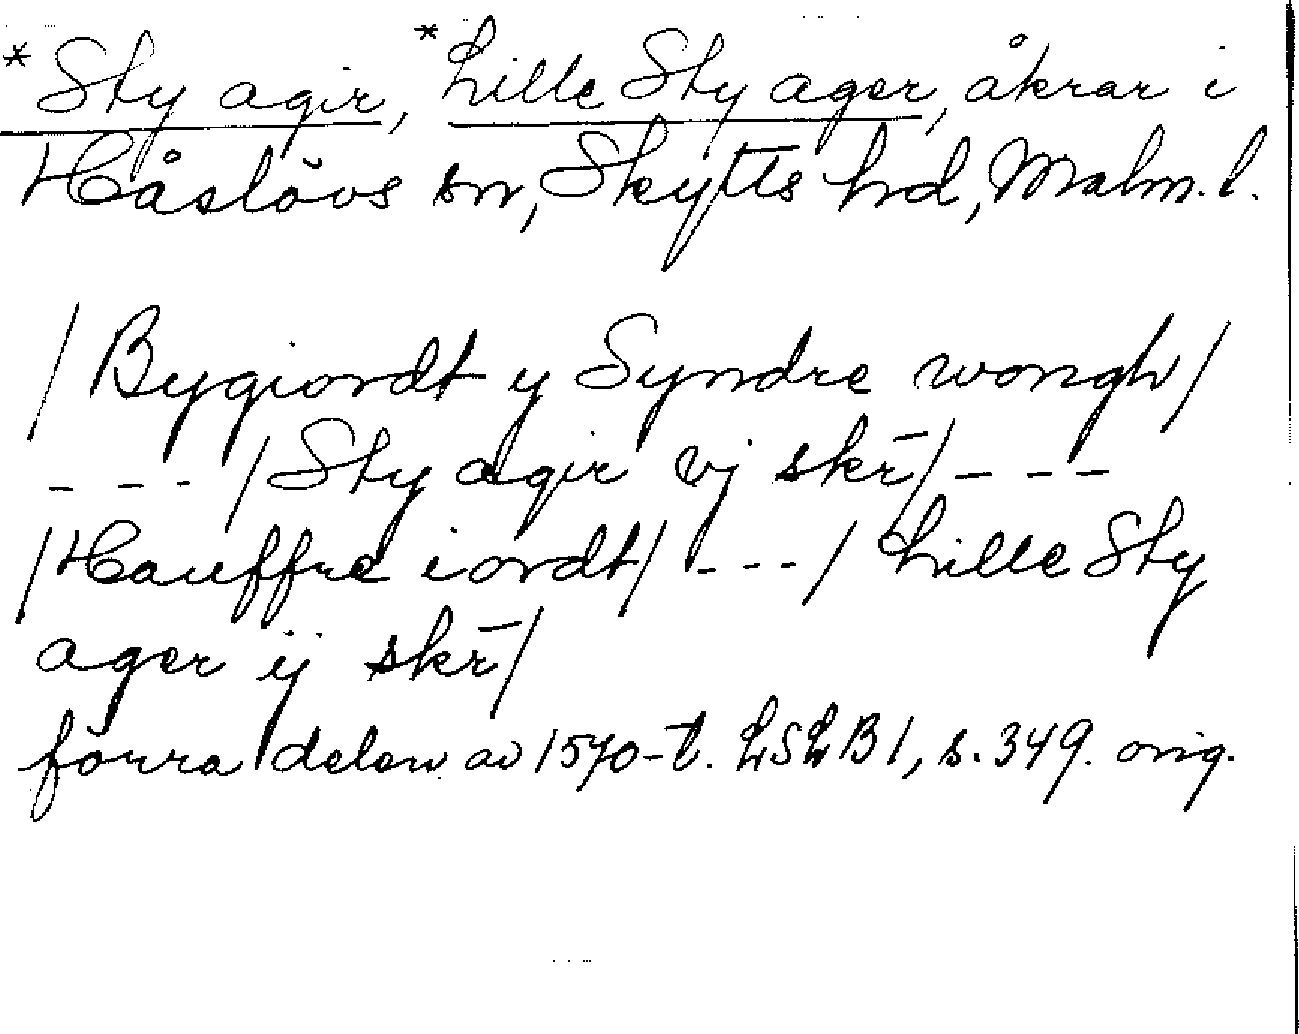 *Sty agir, *Lille Sty ager, åkrar i
Håslövs sn, Skytts hd, Malm. l.
/Bygiordt y Syndre wongh/
--- /Sty agir vj skr̄/ ---
/Hauffre iordt/ --- / Lille Sty
ager ij skr̄/
förra delen av 1570-t. LSLB1, s. 349. orig.